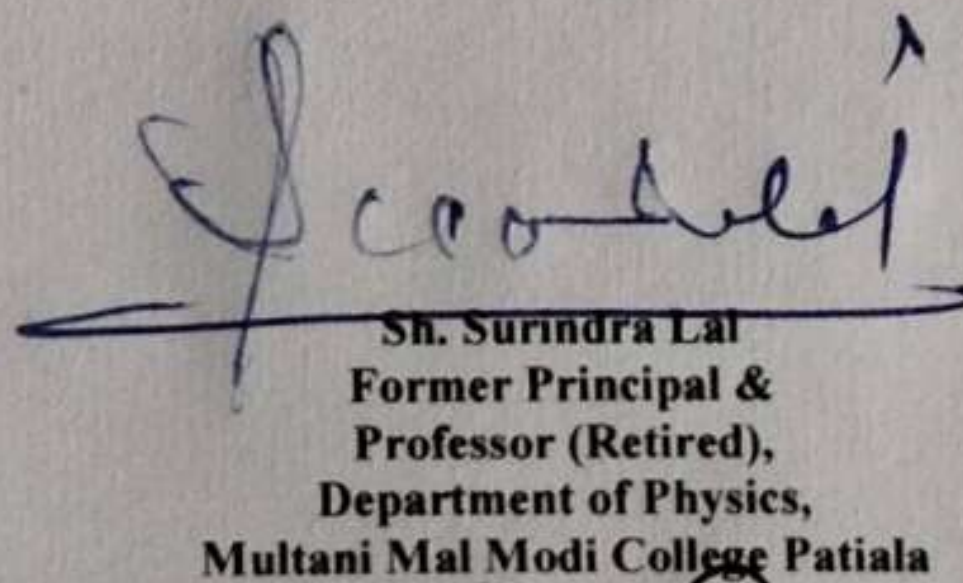 Sh. Surindra Lal
Former Principal &
Professor (Retired),
Department of Physics,
Multani Mal Modi College Patiala